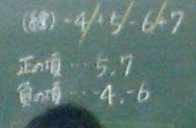 (例) -4+5-6+7
正の項…5,7
負の項…-4,-6